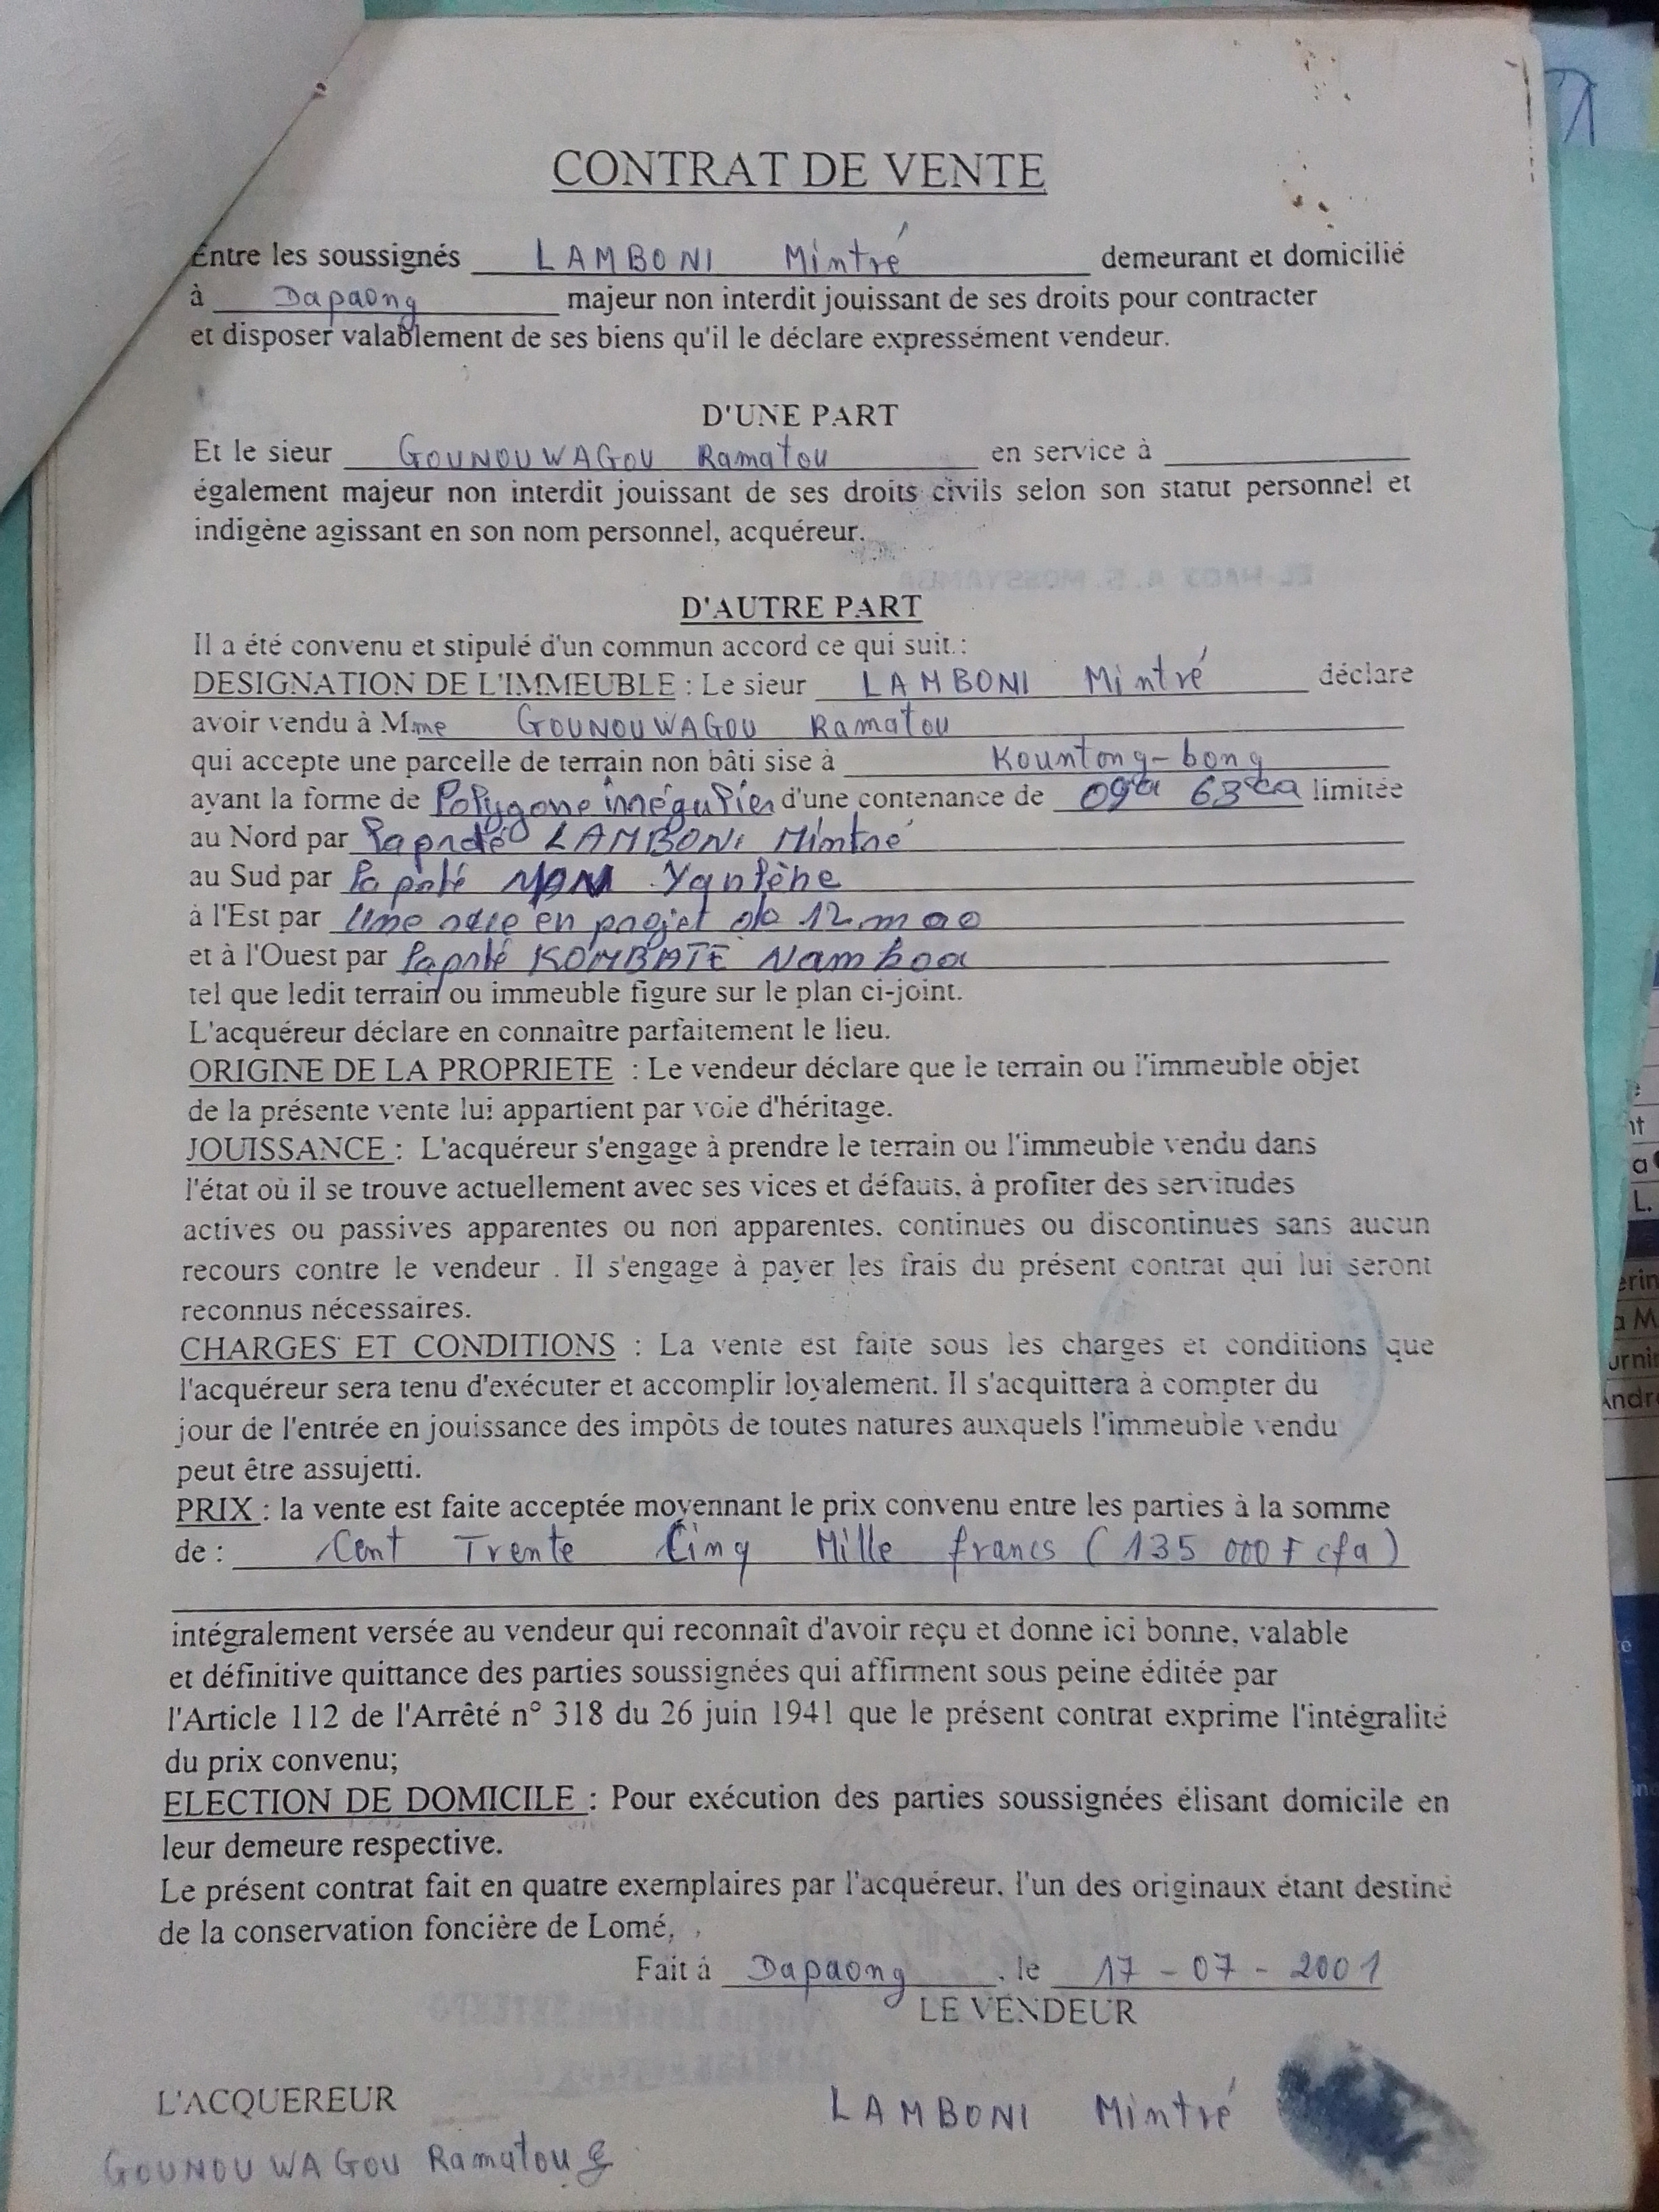 CONTRAT DE VENTE
Entre les soussignés LAMBONI Mintré demeurant et domicilié
à Dapaong majeur non interdit jouissant de ses droits pour contracter
et disposer valablement de ses biens qu'il le déclare expressément vendeur.
D'UNE PART
Et le sieur GOUNOUWAGOU Ramatou en service à
également majeur non interdit jouissant de ses droits civils selon son statut personnel et
indigène agissant en son nom personnel, acquéreur.
D'AUTRE PART
Il a été convenu et stipulé d'un commun accord ce qui suit :
DESIGNATION DE L'IMMEUBLE : Le sieur LAMBONI Mintré déclare
avoir vendu à Mme GOUNOUWAGOU Ramatou
qui accepte une parcelle de terrain non bâti sise à Kountong-bong
ayant la forme de Polygone irrégulier d'une contenance de 09a 63ca limitée
au Nord par LAMBONI Mintré
au Sud par
à l'Est par Une rue en projet de 12 m 00
et à l'Ouest par KOMBATE
tel que ledit terrain ou immeuble figure sur le plan ci-joint.
L'acquéreur déclare en connaître parfaitement le lieu.
ORIGINE DE LA PROPRIETE : Le vendeur déclare que le terrain ou l'immeuble objet
de la présente vente lui appartient par voie d'héritage.
JOUISSANCE : L'acquéreur s'engage à prendre le terrain ou l'immeuble vendu dans
l'état où il se trouve actuellement avec ses vices et défauts, à profiter des servitudes
actives ou passives apparentes ou non apparentes, continues ou discontinues sans aucun
recours contre le vendeur . Il s'engage à payer les frais du présent contrat qui lui seront
reconnus nécessaires.
CHARGES ET CONDITIONS : La vente est faite sous les charges et conditions que
l'acquéreur sera tenu d'exécuter et accomplir loyalement. Il s'acquittera à compter du
jour de l'entrée en jouissance des impôts de toutes natures auxquels l'immeuble vendu
peut être assujetti.
PRIX : la vente est faite acceptée moyennant le prix convenu entre les parties à la somme
de : Cent Trente Cinq Mille francs (135 000 F cfa)
intégralement versée au vendeur qui reconnaît d'avoir reçu et donne ici bonne, valable
et définitive quittance des parties soussignées qui affirment sous peine éditée par
l'Article 112 de l'Arrêté n° 318 du 26 juin 1941 que le présent contrat exprime l'intégralité
du prix convenu;
ELECTION DE DOMICILE : Pour exécution des parties soussignées élisant domicile en
leur demeure respective.
Le présent contrat fait en quatre exemplaires par l'acquéreur, l'un des originaux étant destiné
de la conservation foncière de Lomé,
Fait à Dapaong, le 17 - 07 - 2001
LE VENDEUR
L'ACQUEREUR
LAMBONI Mintré
GOUNOUWAGOU Ramatou